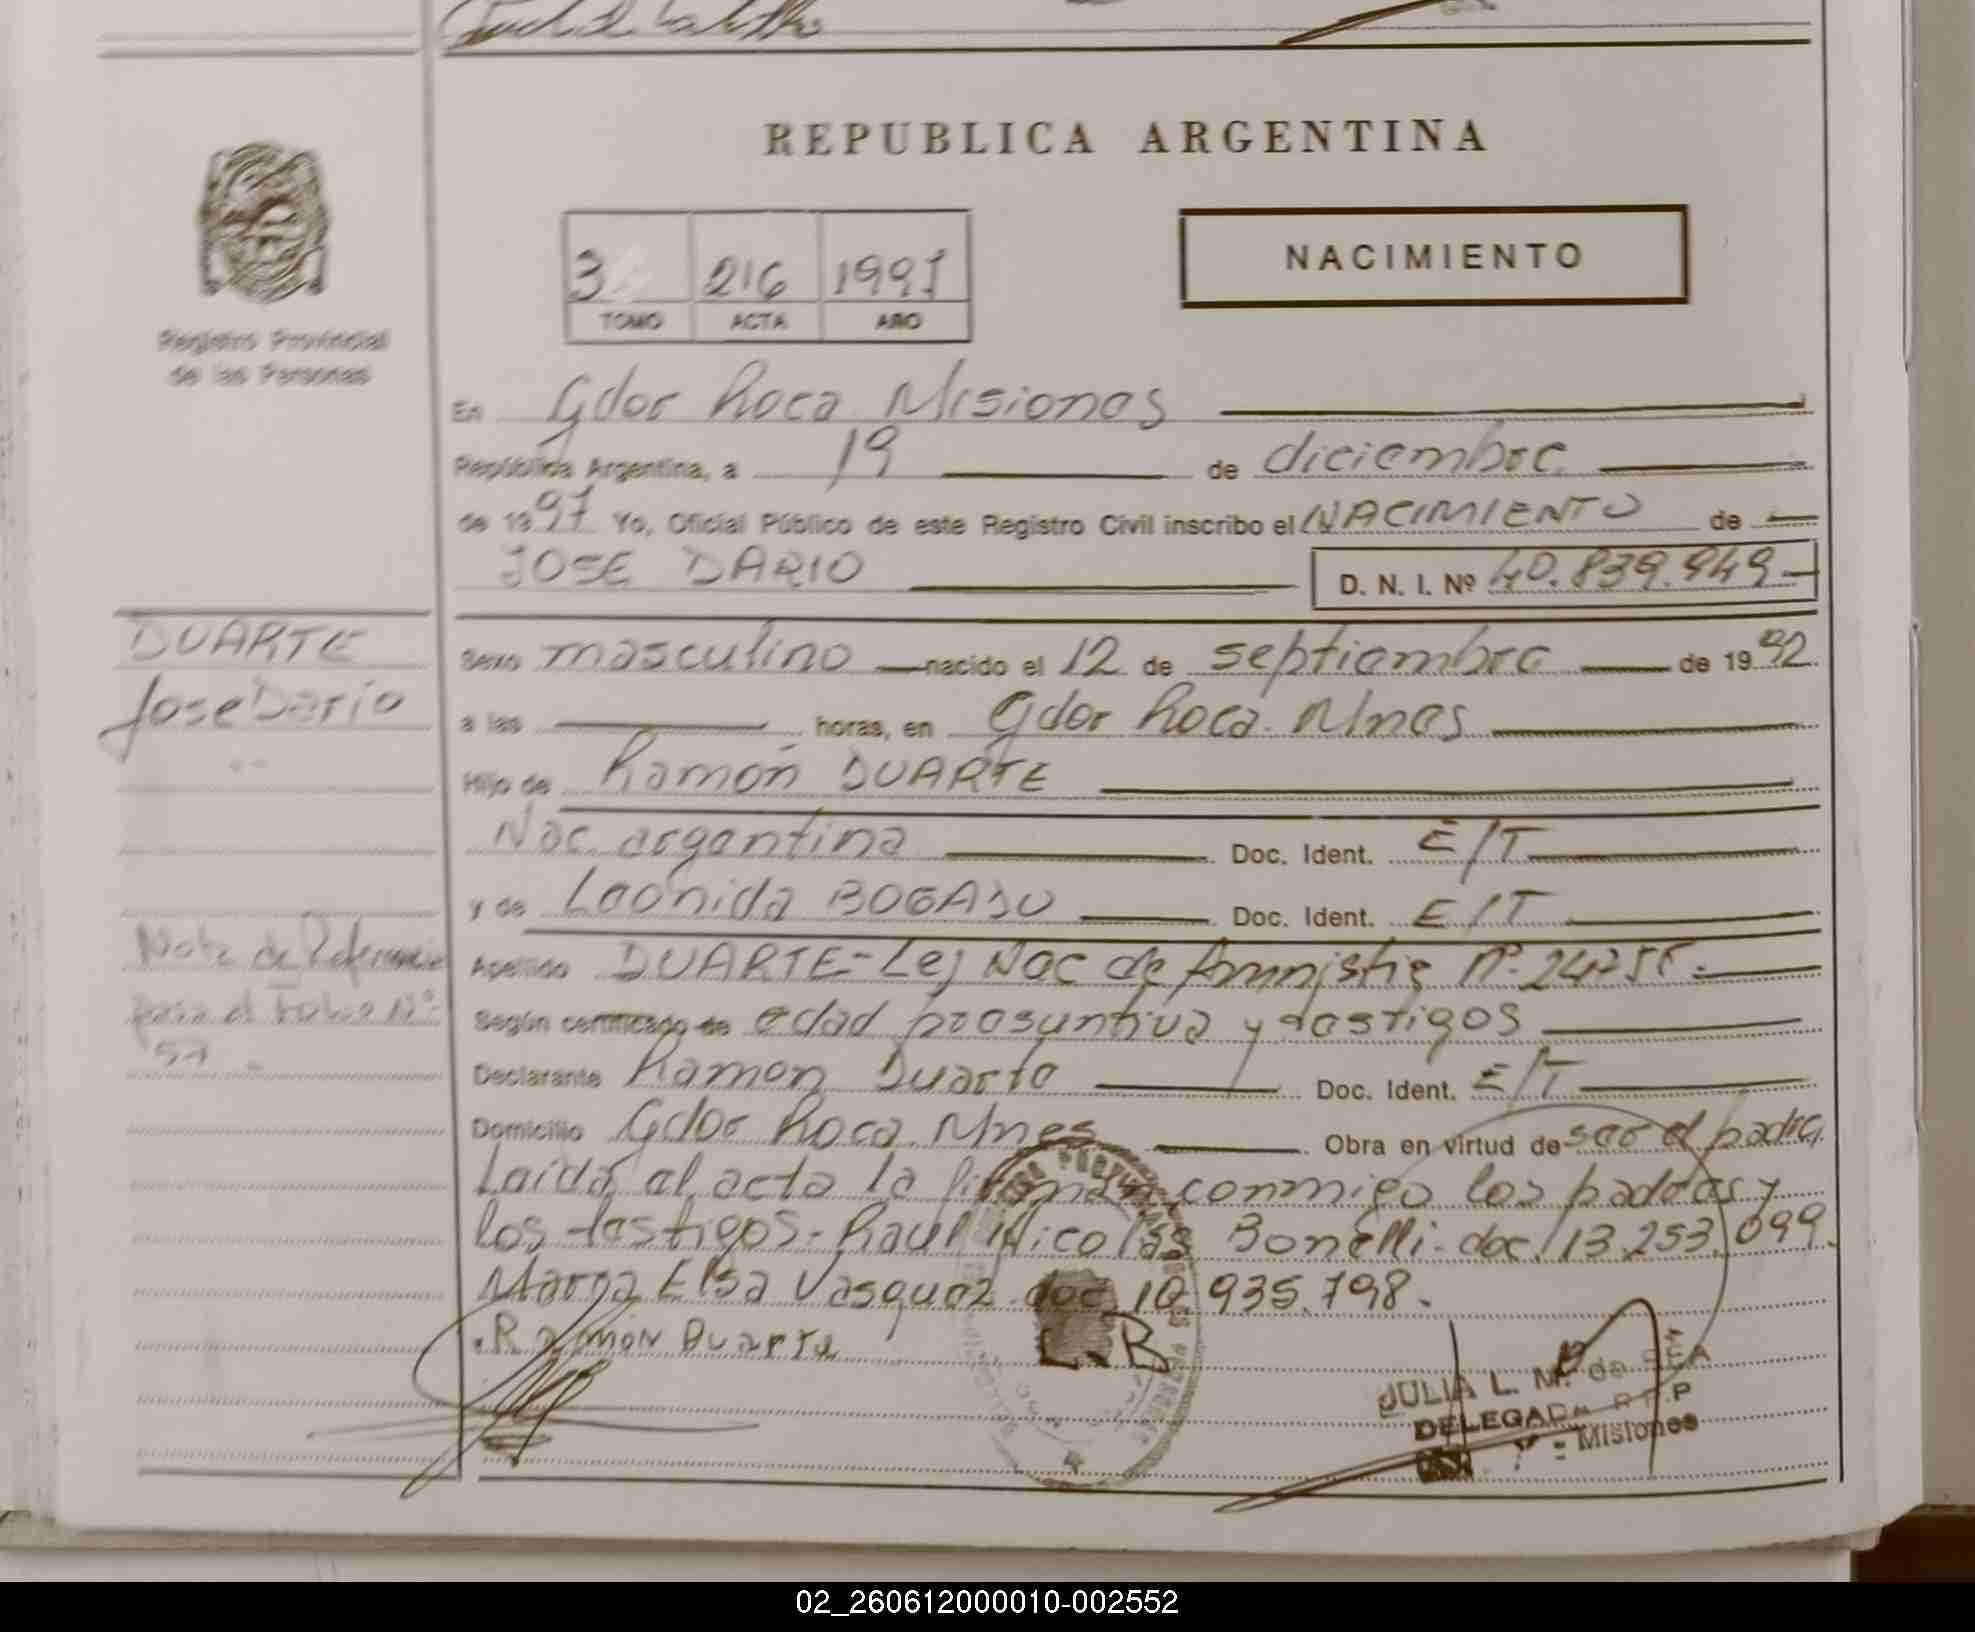 REPUBLICA ARGENTINA
NACIMIENTO
3 216 1997
TOMO ACTA AÑO
Registro Provincial
de las Personas
En Gdor Roca Misiones
República Argentina, a 19 de diciembre
de 1997 Yo, Oficial Público de este Registro Civil inscribo el NACIMIENTO de
JOSE DARIO D. N. I. Nº 40.839.949
DUARTE
Jose Dario
Sexo masculino nacido el 12 de septiembre de 1992
a las horas, en Gdor Roca Mnes
Hijo de Ramón DUARTE
Nac. argentina Doc. Ident. E/T
y de Leonida BOGADO Doc. Ident. E/T
Nota de Referencia
para el Folio Nº
57
Apellido DUARTE-Ley Nac de Amnistia Nº 24755.
Según certificado de edad presuntiva y testigos
Declarante Ramon Duarte Doc. Ident. E/T
Domicilio Gdor Roca Mnes Obra en virtud de ser el padre
Leida el acta la firman conmigo los padres y
los testigos. Raul Nicolas Bonelli. doc. 13.253.099.
Marga Elsa Vasquez doc 10.935.798.
Ramón Duarte L.B
JULIA L. M. de
DELEGADA R.P.P
Misiones
02_260612000010-002552